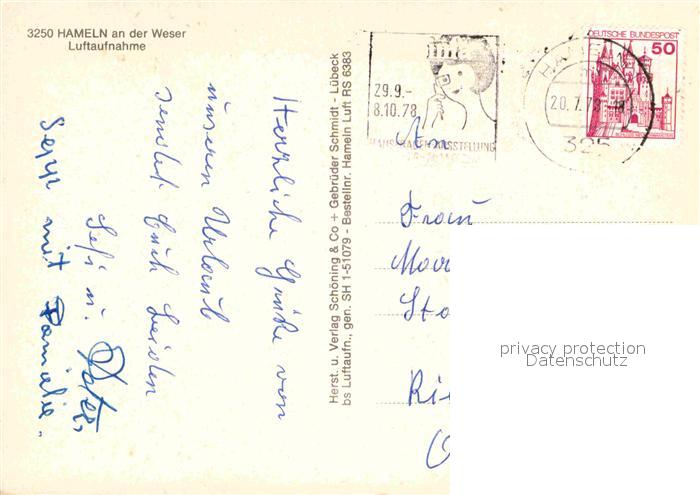 3250 HAMELN an der Weser
Luftaufnahme
Herrliche Grüße von
unseren Urlaub
sendet Euch beiden
Sefi u. Peter,
Sepp mit Familie.
Herst. u. Verlag Schöning & Co + Gebrüder Schmidt - Lübeck
bs Luftaufn., gen. SH 1-51079 - Bestellnr. Hameln Luft RS 6383
29.9.-
8.10.78
HAUSFRAUEN-AUSSTELLUNG
HAMELN
20.7.78
325
DEUTSCHE BUNDESPOST
50
An
Frau
Ri
privacy protection
Datenschutz